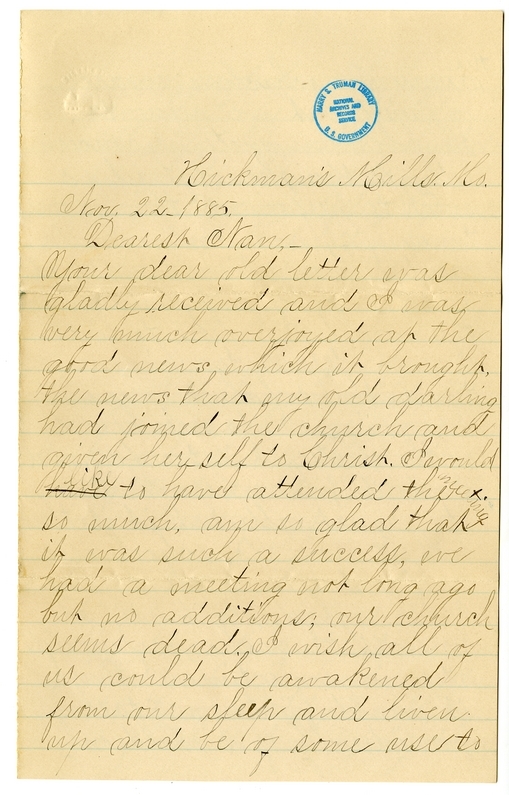 HARRY S. TRUMAN LIBRARY
NATIONAL
ARCHIVES AND
RECORDS
SERVICE
U. S. GOVERNMENT
Hickman's Mills. Mo.
Nov. 22-1885.
Dearest Nan,-
Your dear old letter was
gladly received and I was
very much overjoyed at the
good news, which it brought.
the news that my old darling
had joined the church and
given her self to Christ. I would
have like to have attended the meeting
so much, am so glad that
it was such a success, we
had a meeting not long ago
but no additions; our church
seems dead. I wish all of
us could be awakened
from our sleep and liven
up and be of some use to